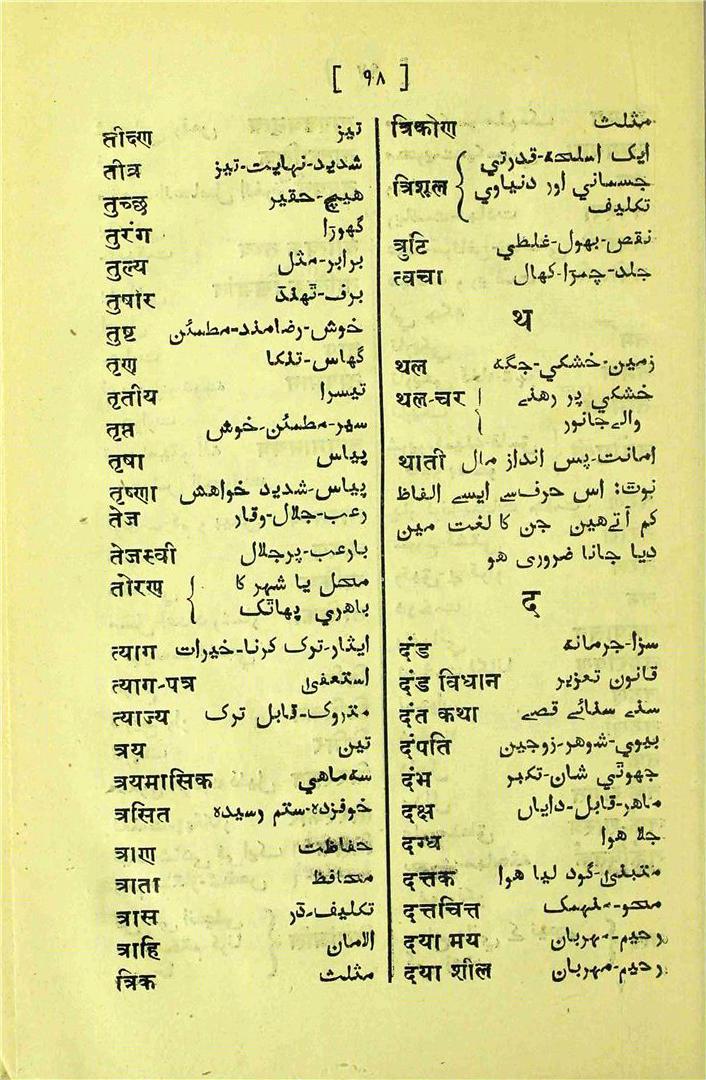 [ ۹۸ ]
तीक्ष्ण تیز
तीव्र شدید-نہایت-تیز
तुच्छ ھیچ-حقیر
तुरंग گھوڑا
तुल्य برابر-مثل
तुषार برف-ٹھنڈ
तुष्ट خوش-رضامند-مطمئن
तृण گھاس-تنکا
तृतीय تیسرا
तृप्त سیر-مطمئن-خوش
तृषा پیاس
तृष्णा پیاس-شدید خواھش
तेज رعب-جلال-وقار
तेजस्वी بارعب-پرجلال
तोरण { محل یا شہر کا
باھری پھاٹک
त्याग ایثار-ترک کرنا-خیرات
त्याग-पत्र استعفیٰ
त्याज्य متروک-قابل ترک
त्रय تین
त्रयमासिक سہ ماھی
त्रसित خوفزدہ-ستم رسیدہ
त्राण حفاظت
त्राता محافظ
त्रास تکلیف-ڈر
त्राहि الامان
त्रिक مثلث
त्रिकोण مثلث
त्रिशूल { ایک اسلحہ-قدرتی
جسمانی اور دنیاوی
تکلیف
त्रुटि نقص-بھول-غلطی
त्वचा جلد-چمڑا-کھال
थ
थल زمین-خشکی-جگہ
थल-चर { خشکی پر رھنے
والے جانور
थाती امانت-پس انداز مال
نوٹ: اس حرف سے ایسے الفاظ
کم آتے ھیں جن کا لغت میں
دیا جانا ضروری ھو
द
दंड سزا-جرمانہ
दंड विधान قانون تعزیر
दंत कथा سنے سنائے قصے
दंपति بیوی-شوھر-زوجین
दंभ جھوٹی شان-تکبر
दक्ष ماھر-قابل-دایاں
दग्ध جلا ھوا
दत्तक متبنیٰ-گود لیا ھوا
दत्तचित्त محو-منہمک
दया मय رحیم-مہربان
दया शील رحیم-مہربان